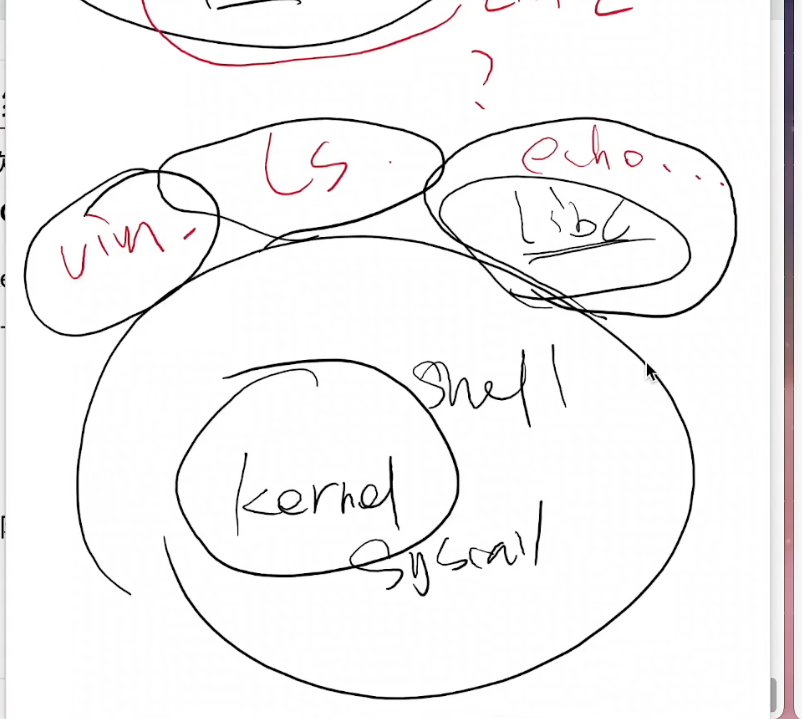 ?
LS
echo...
vim
libc
shell
kernel
syscall